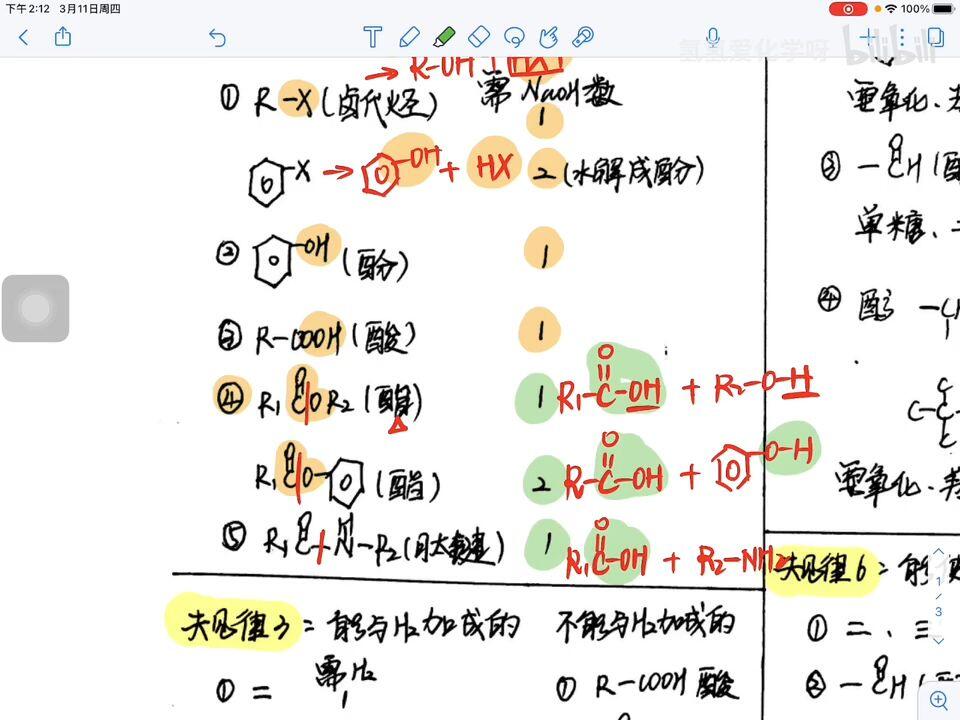 下午2:12 3月11日周四
100%
氢氢爱化学呀 bilibili
→ R-OH + HX
① R-X (卤代烃) 需NaOH数
1
X → OH + HX 2 (水解成酚)
② OH (酚) 1
③ R-COOH (酸) 1
④ R₁ C O OR₂ (酯) 1 R₁-C-OH + R₂-O-H
O
R₁ C O O (酯) 2 R-C-OH + O-H
O
⑤ R₁ C N-R₂ (肽键) 1 R₁C-OH + R₂-NH₂
O
规律3 = 能与H₂加成的 不能与H₂加成的
需H₂
① = 1 ① R-COOH 酸
要氧化、
③ -CH
单糖、
④ 酮
C-C
C
要氧化、
规律6 =
① =、≡
② -CH
1
3